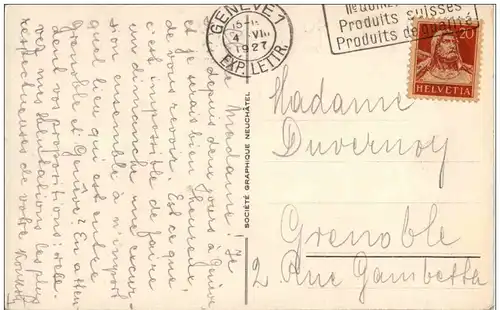 Madame! Je
suis depuis deux jours à Genève,
et je serais bien heureuse
de vous revoir. Est ce que
c'est impossible de faire
un dimanche une excur-
sion ensemble à n'import
quel lieu qui est entre
Grenoble et Genève? En atten-
dant vos propositions: rece-
vez mes salutations les plus
respectueuses de votre
SOCIÉTÉ GRAPHIQUE NEUCHÂTEL
GENÈVE 1
15-
4 VIII
1927
EXP. LETTR.
Produits suisses
Produits de qualité
20
HELVETIA
Madame
Duvernoy
Grenoble
2 Rue Gambetta